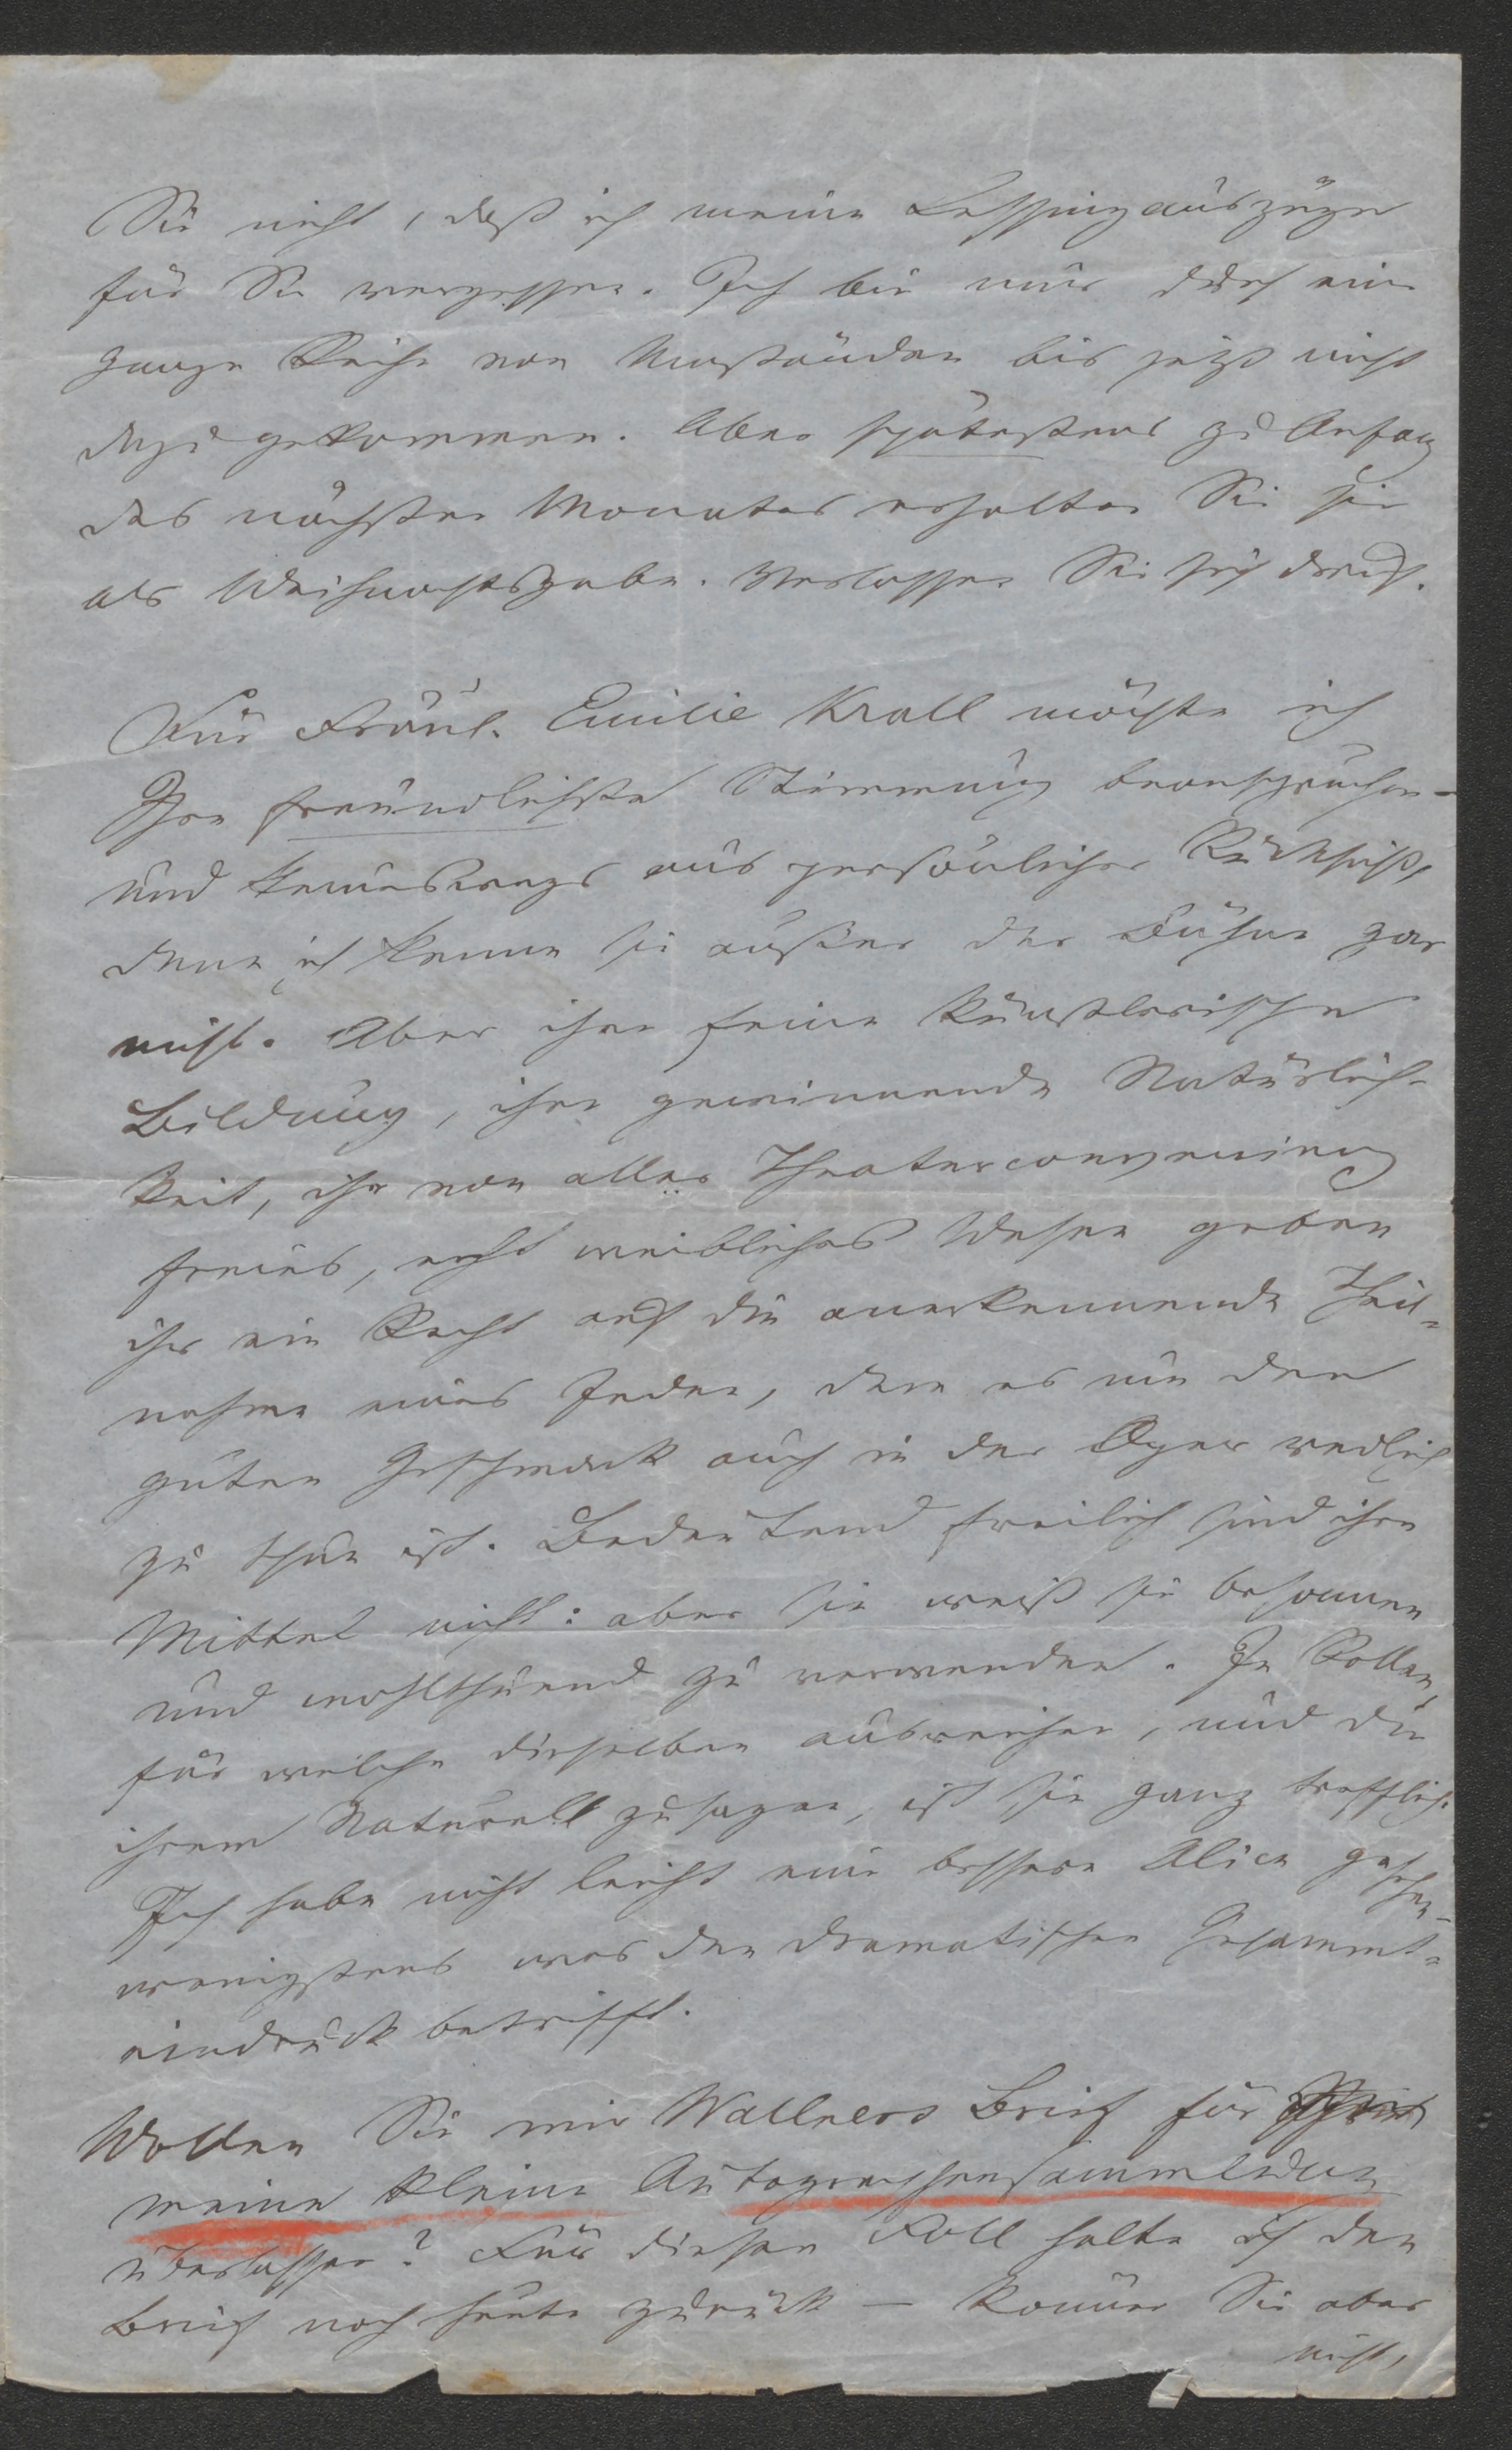 Sie nicht, daß ich meine Lessingauszüge
für Sie vergessen. Ich bin nur durch eine
ganze Reihe von Umständen bis jetzt nicht
dazu gekommen. Aber spätestens zu Anfang
des nächsten Monates erhalten Sie sie
als Weihnachtsgabe. Verlassen Sie sich drauf.
Für Fräul. Emilie Krall möchte ich
Ihre freundlichste Stimmung beanspruchen –
und keineswegs aus persönlicher Rücksicht,
denn ich kenne sie außer der Bühne gar
nicht. Aber ihre feine künstlerische
Bildung, ihre gewinnende Natürlich-
keit, ihr von aller
freies, echt weibliches Wesen geben
ihr ein Recht auf die anerkennende Theil-
nahme eines Jeden, dem es um den
guten Geschmack auch in der Oper redlich
zu thun ist. Bedeutend freilich sind ihre
Mittel nicht: aber sie weiß sie besonnen
und wohlthuend zu verwenden. In Rollen,
für welche dieselben ausreichen, und die
ihrem Naturell zusagen, ist sie ganz trefflich.
Ich habe nicht leicht eine bessere Alice gesehen –
wenigstens was den dramatischen Gesammt-
eindruck betrifft.
Wollen Sie mir Wallners Brief für
meine kleine Autographensammlung
überlassen? Für diesen Fall halte ich den
Brief noch heute zurück – können Sie aber
nicht,